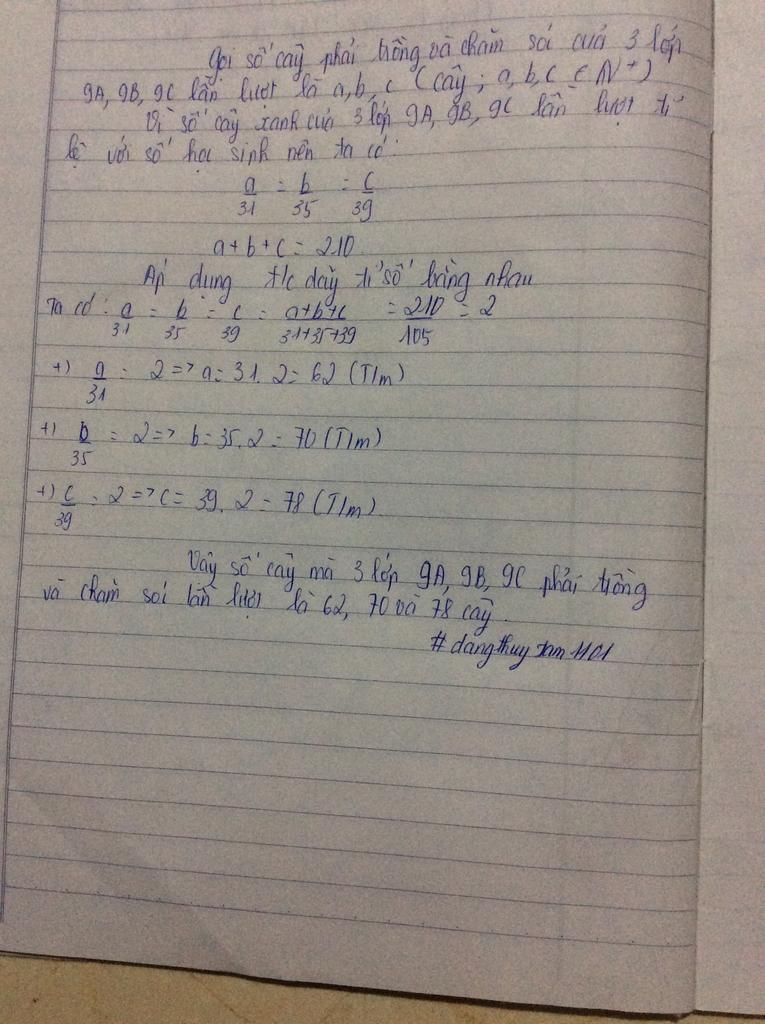 Gọi số cây phải trồng và chăm sóc của 3 lớp
9A, 9B, 9C lần lượt là a, b, c (cây; a, b, c ∈ N⁺)
Vì số cây xanh của 3 lớp 9A, 9B, 9C lần lượt tỉ
lệ với số học sinh nên ta có:
a/31 = b/35 = c/39
a+b+c = 210
Áp dụng t/c dãy tỉ số bằng nhau
Ta có: a/31 = b/35 = c/39 = a+b+c/31+35+39 = 210/105 = 2
+) a/31 = 2 => a = 31.2 = 62 (T/m)
+) b/35 = 2 => b = 35.2 = 70 (T/m)
+) c/39 = 2 => c = 39.2 = 78 (T/m)
Vậy số cây mà 3 lớp 9A, 9B, 9C phải trồng
và chăm sóc lần lượt là 62, 70 và 78 cây.
#dangthuytam1101